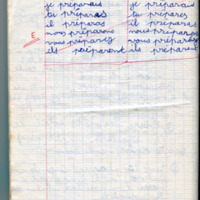 je préparais je préparais
tu préparas tu prépares
il préparas il préparas
nous préparons nous préparons
E vous préparez vous préparez
ils préparent ils préparent